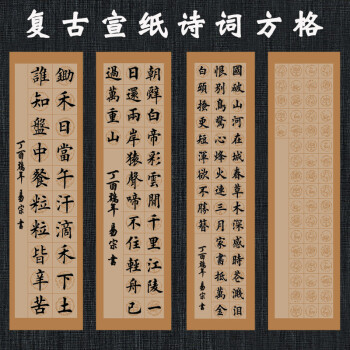 复古宣纸诗词方格
鋤禾日當午汗滴禾下土
誰知盤中餐粒粒皆辛苦
丁酉年 易宗書
朝辤白帝彩雲間千里江陵一
日還兩岸猿聲啼不住輕舟已
過萬重山
丁酉年 易宗書
國破山河在城春草木深感時花濺泪
恨別鳥驚心烽火連三月家書抵萬金
白頭搔更短渾欲不勝簪
丁酉年 易宗書